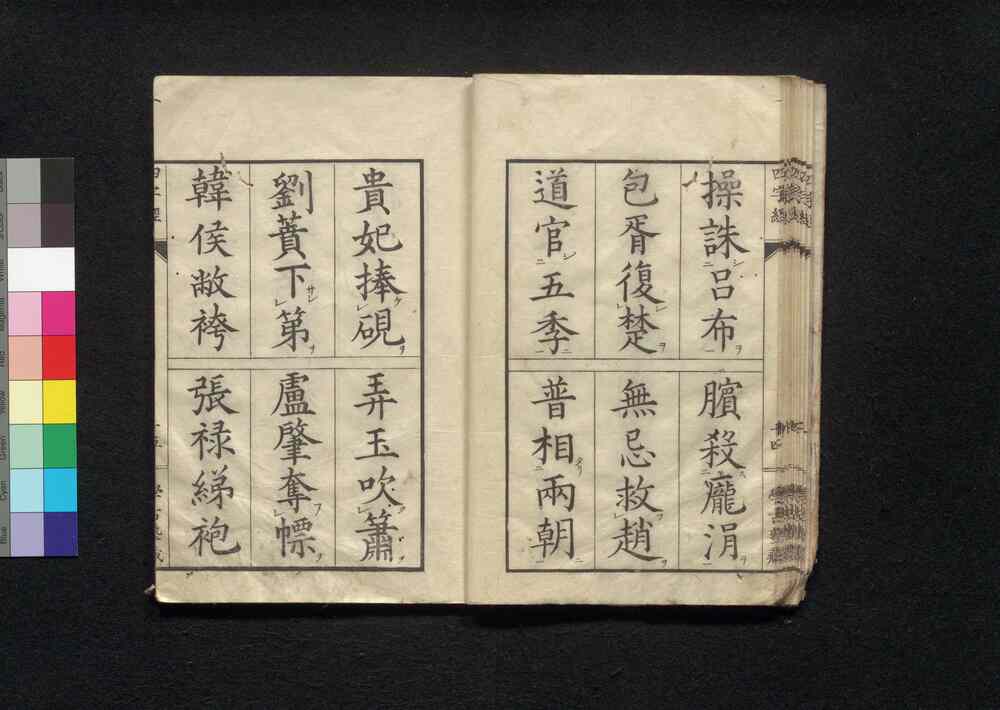 操誅呂布
臏殺龐涓
包胥復楚
無忌救趙
道官五季
普相兩朝
貴妃捧硯
弄玉吹簫
劉蕡下第
盧肇奪幖
韓侯敝袴
張禄綈袍
四字經